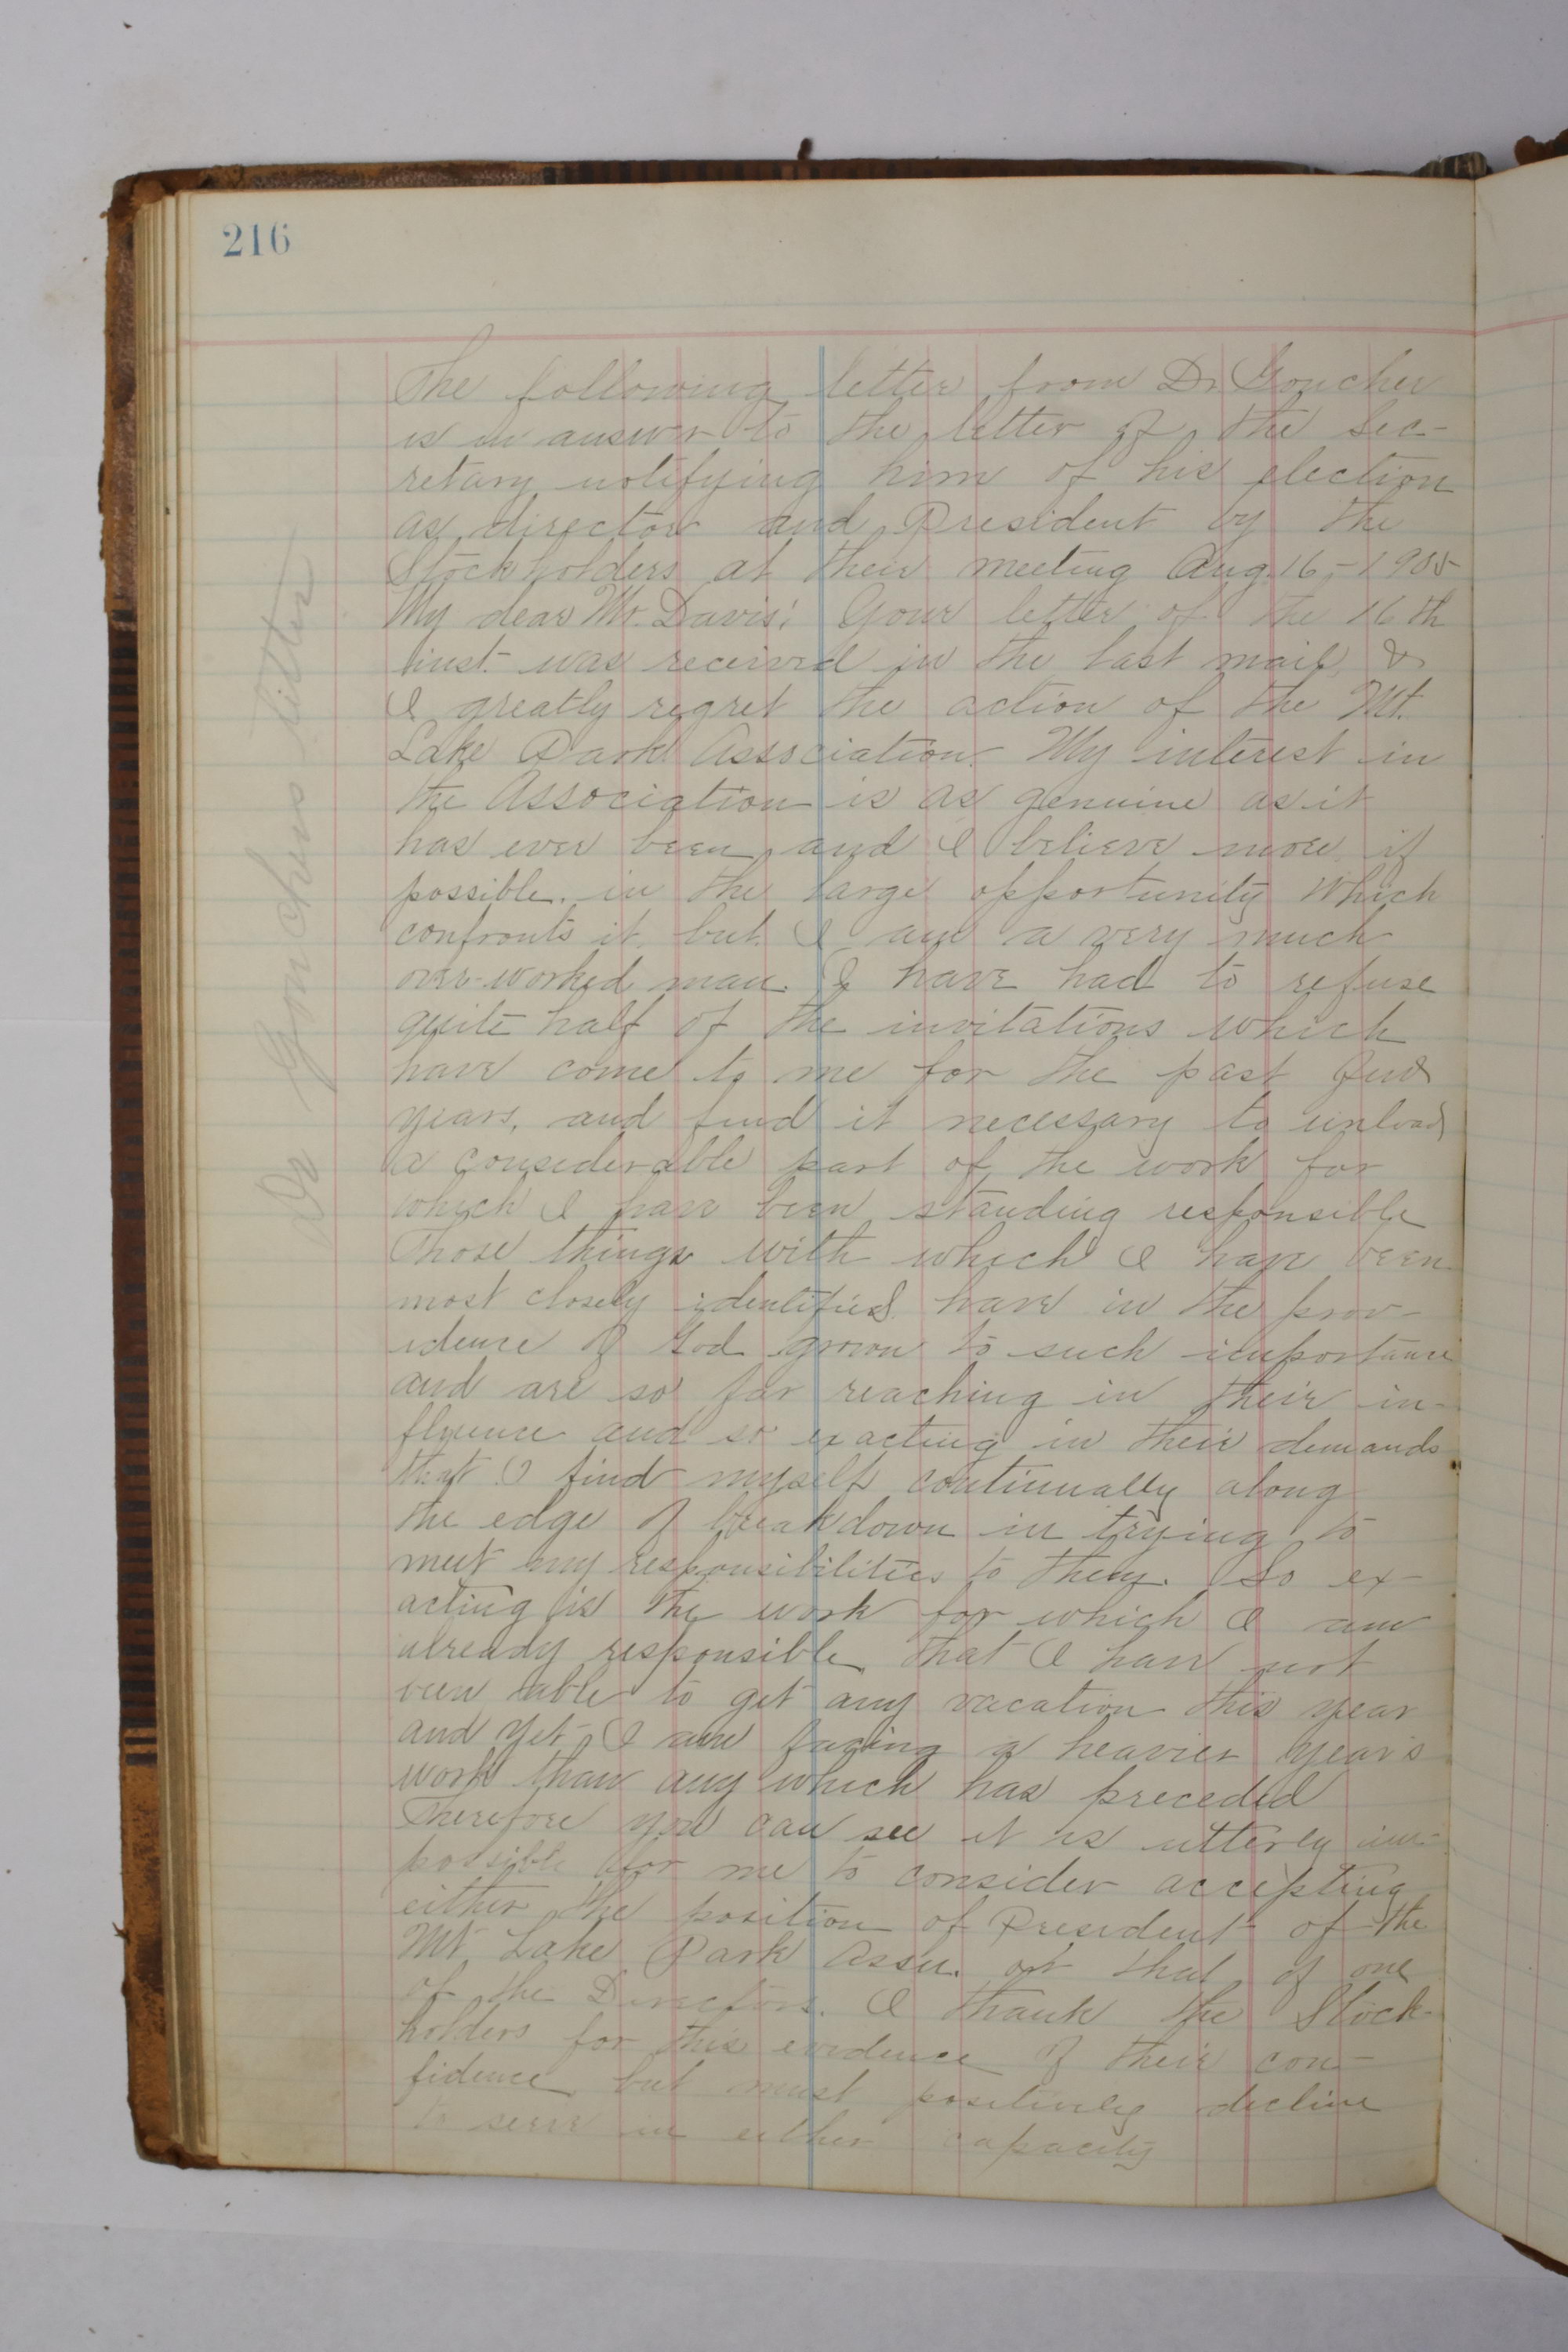 216
Dr Gouchers letter
The following letter from Dr Goucher
is in answer to the letter of the Sec-
retary notifying him of his election
as director and President by the
Stockholders at their meeting Aug. 16,-1905
My dear Mr. Davis; Your letter of the 16th
inst. was received in the last mail, &
I greatly regret the action of the Mt.
Lake Park Association. My interest in
the Association is as genuine as it
has ever been, and I believe more, if
possible, in the large opportunity which
confronts it, but I am a very much
over-worked man. I have had to refuse
quite half of the invitations which
have come to me for the past few
years, and find it necessary to unload
a considerable part of the work for
which I have been standing responsible
Those things with which I have been
most closely identified have in the prov-
idence of God grown to such importance
and are so far reaching in their in-
fluence and so exacting in their demands
that I find myself continually along
the edge of breakdown in trying to
meet my responsibilities to them. So ex-
acting is the work for which I am
already responsible that I have not
been able to get any vacation this year
and yet I am facing a heavier year's
work than any which has preceded
Therefore you can see it is utterly im-
possible for me to consider accepting
either the position of President of the
Mt. Lake Park Assn. or that of one
of the Directors. I thank the Stock-
holders for this evidence of their con-
fidence, but must positively decline
to serve in either capacity